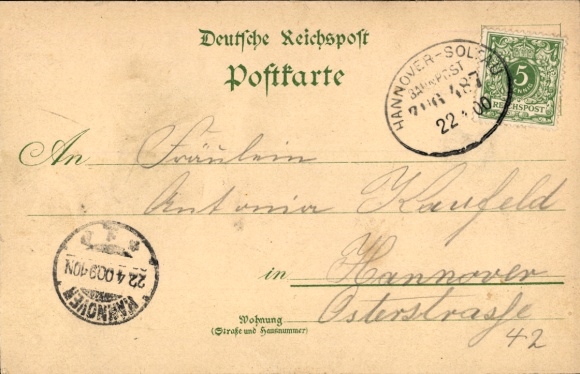 Deutsche Reichspost
Postkarte
HANNOVER-SOLTAU
BAHNPOST
ZUG 487
22 4 00
5
PFENNIG
REICHSPOST
An Fräulein
Antonia Kaufeld
in Hannover
Wohnung
(Straße und Hausnummer)
Osterstraße
42
HANNOVER
22.4.00.9-10N